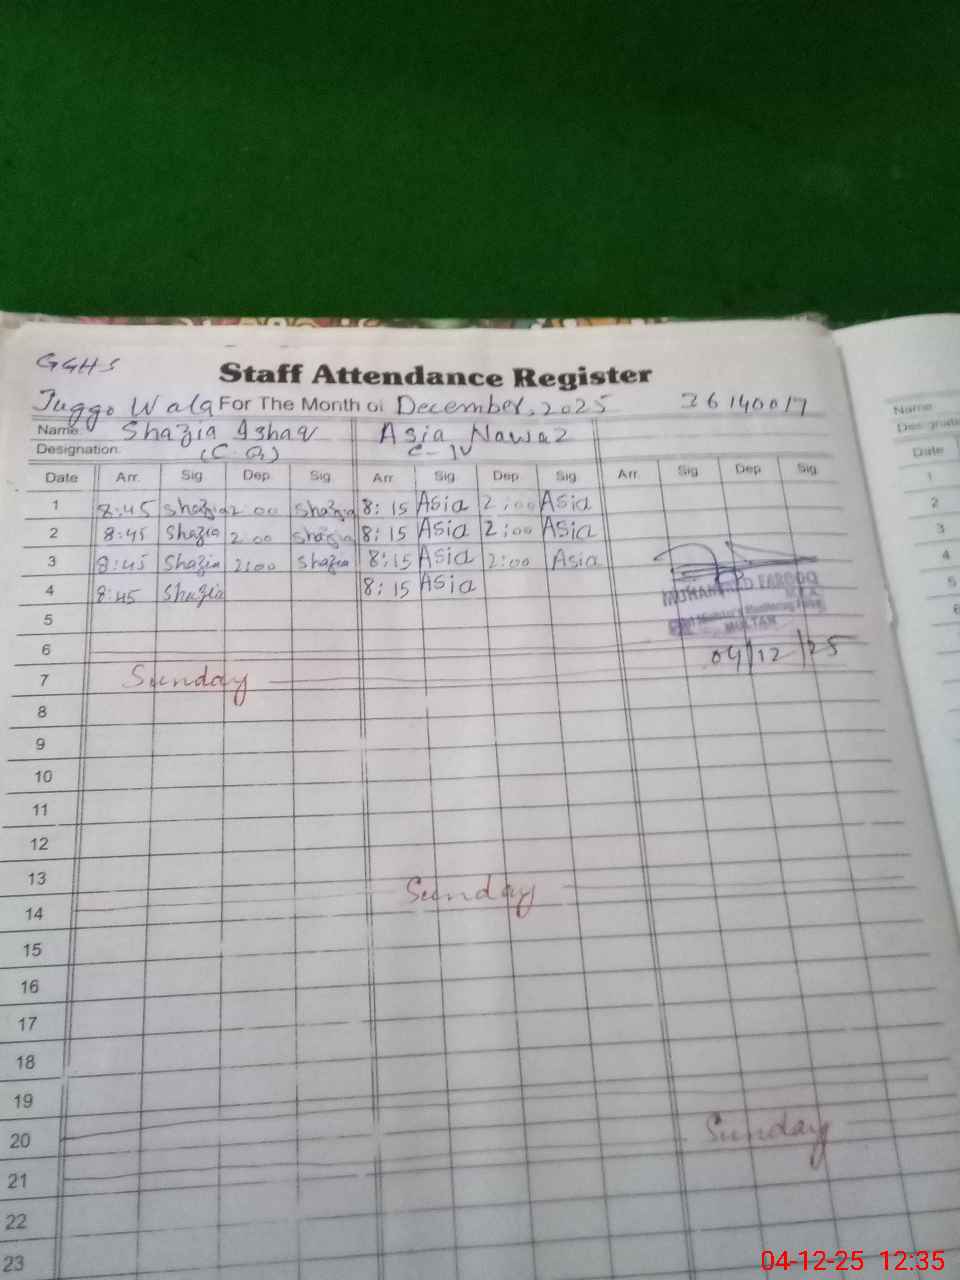 GGHS
Staff Attendance Register
Juggo Wala For The Month of December, 2025 36140017
Name: Shazia Ishaq Asia Nawaz
Designation: (C.Q) C-IV
Date Arr. Sig. Dep. Sig. Arr. Sig. Dep Sig Arr. Sig Dep Sig
1 8:45 Shazia 2:00 Shazia 8:15 Asia 2:00 Asia
2 8:45 Shazia 2:00 Shazia 8:15 Asia 2:00 Asia
3 8:45 Shazia 2:00 Shazia 8:15 Asia 2:00 Asia
4 8:45 Shazia 8:15 Asia
MUHAMMAD FAROOQ
M.E.A.
Monitoring Force
MULTAN
5
6 04/12/25
7 Sunday
8
9
10
11
12
13
14 Sunday
15
16
17
18
19
20
21 Sunday
22
23
Name
Designation
Date
1
2
3
4
5
6
04-12-25 12:35